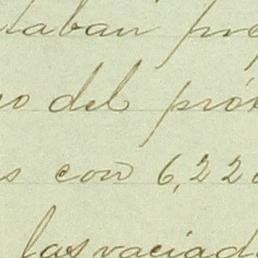 taban pre
o del próx
s con 6,220
las vaciad